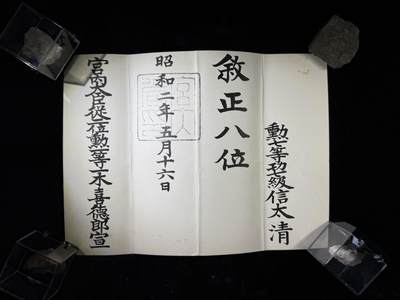 勲七等功七級信太清
敘正八位
昭和二年五月十六日
宮内大臣従二位勲一等一木喜徳郎宣